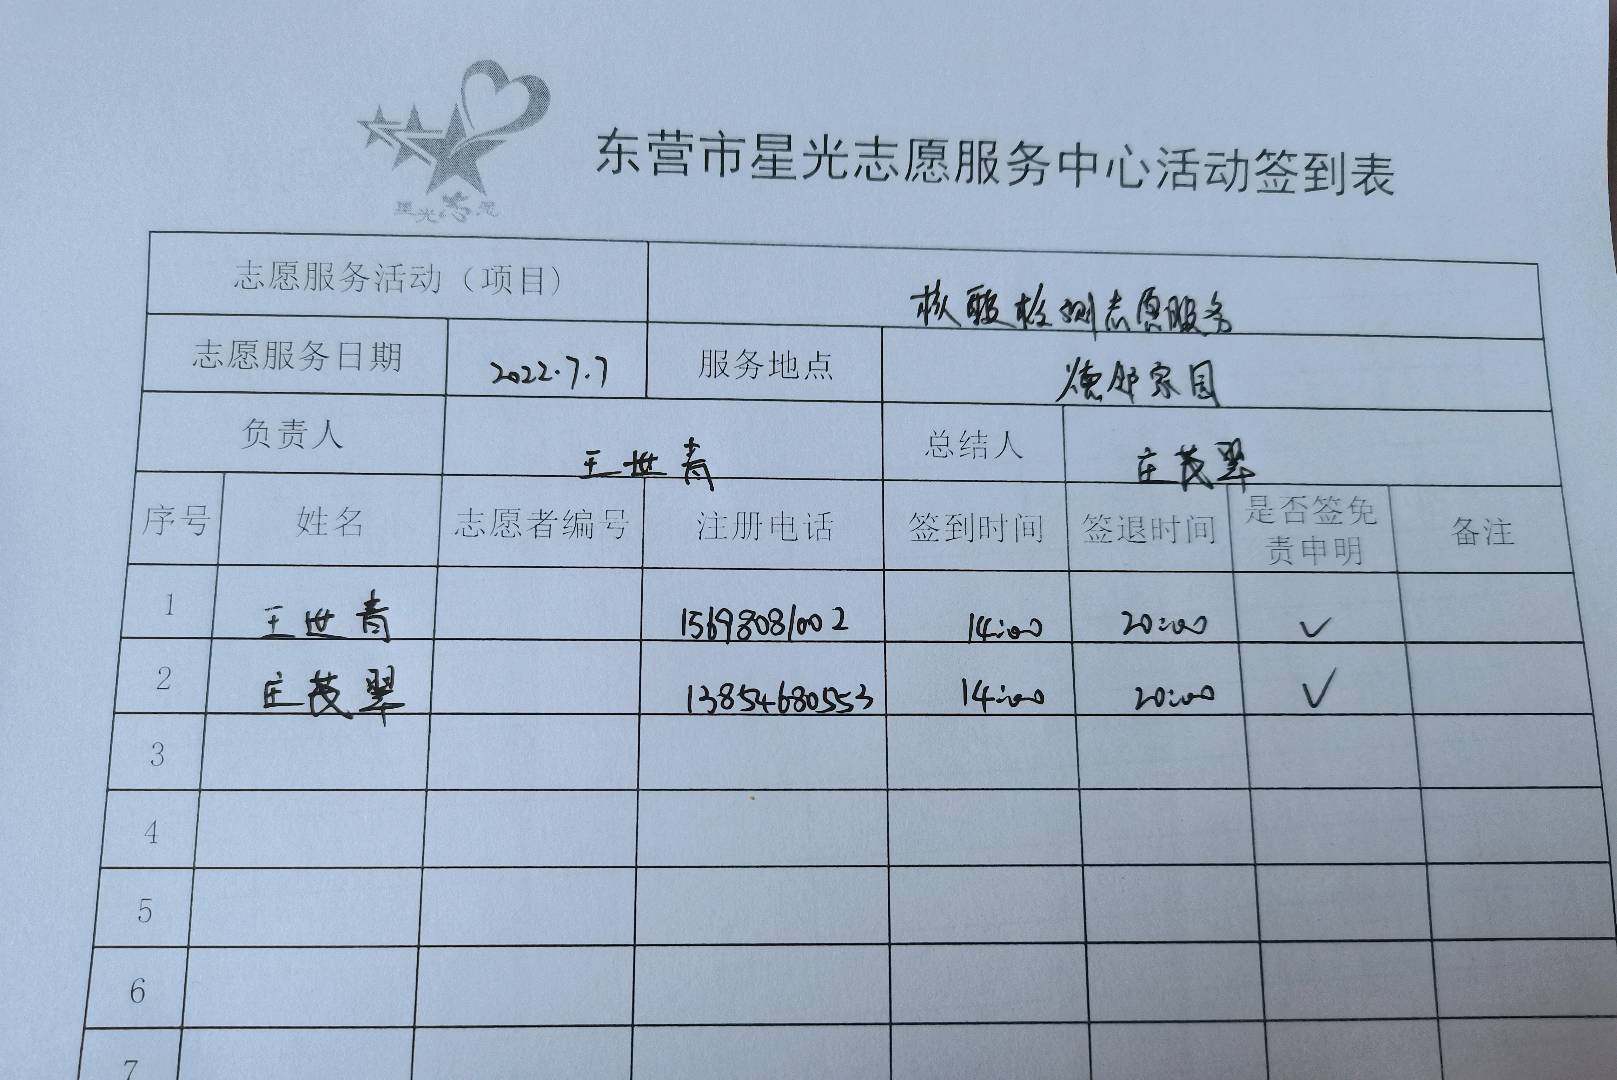 星光志愿
东营市星光志愿服务中心活动签到表
志愿服务活动（项目） 核酸检测志愿服务
志愿服务日期 2022.7.7 服务地点 德邻家园
负责人 王世青 总结人 庄茂翠
序号 姓名 志愿者编号 注册电话 签到时间 签退时间 是否签免责申明 备注
1 王世青 15698081002 14:00 20:00 ✓
2 庄茂翠 13854680553 14:00 20:00 ✓
3
4
5
6
7